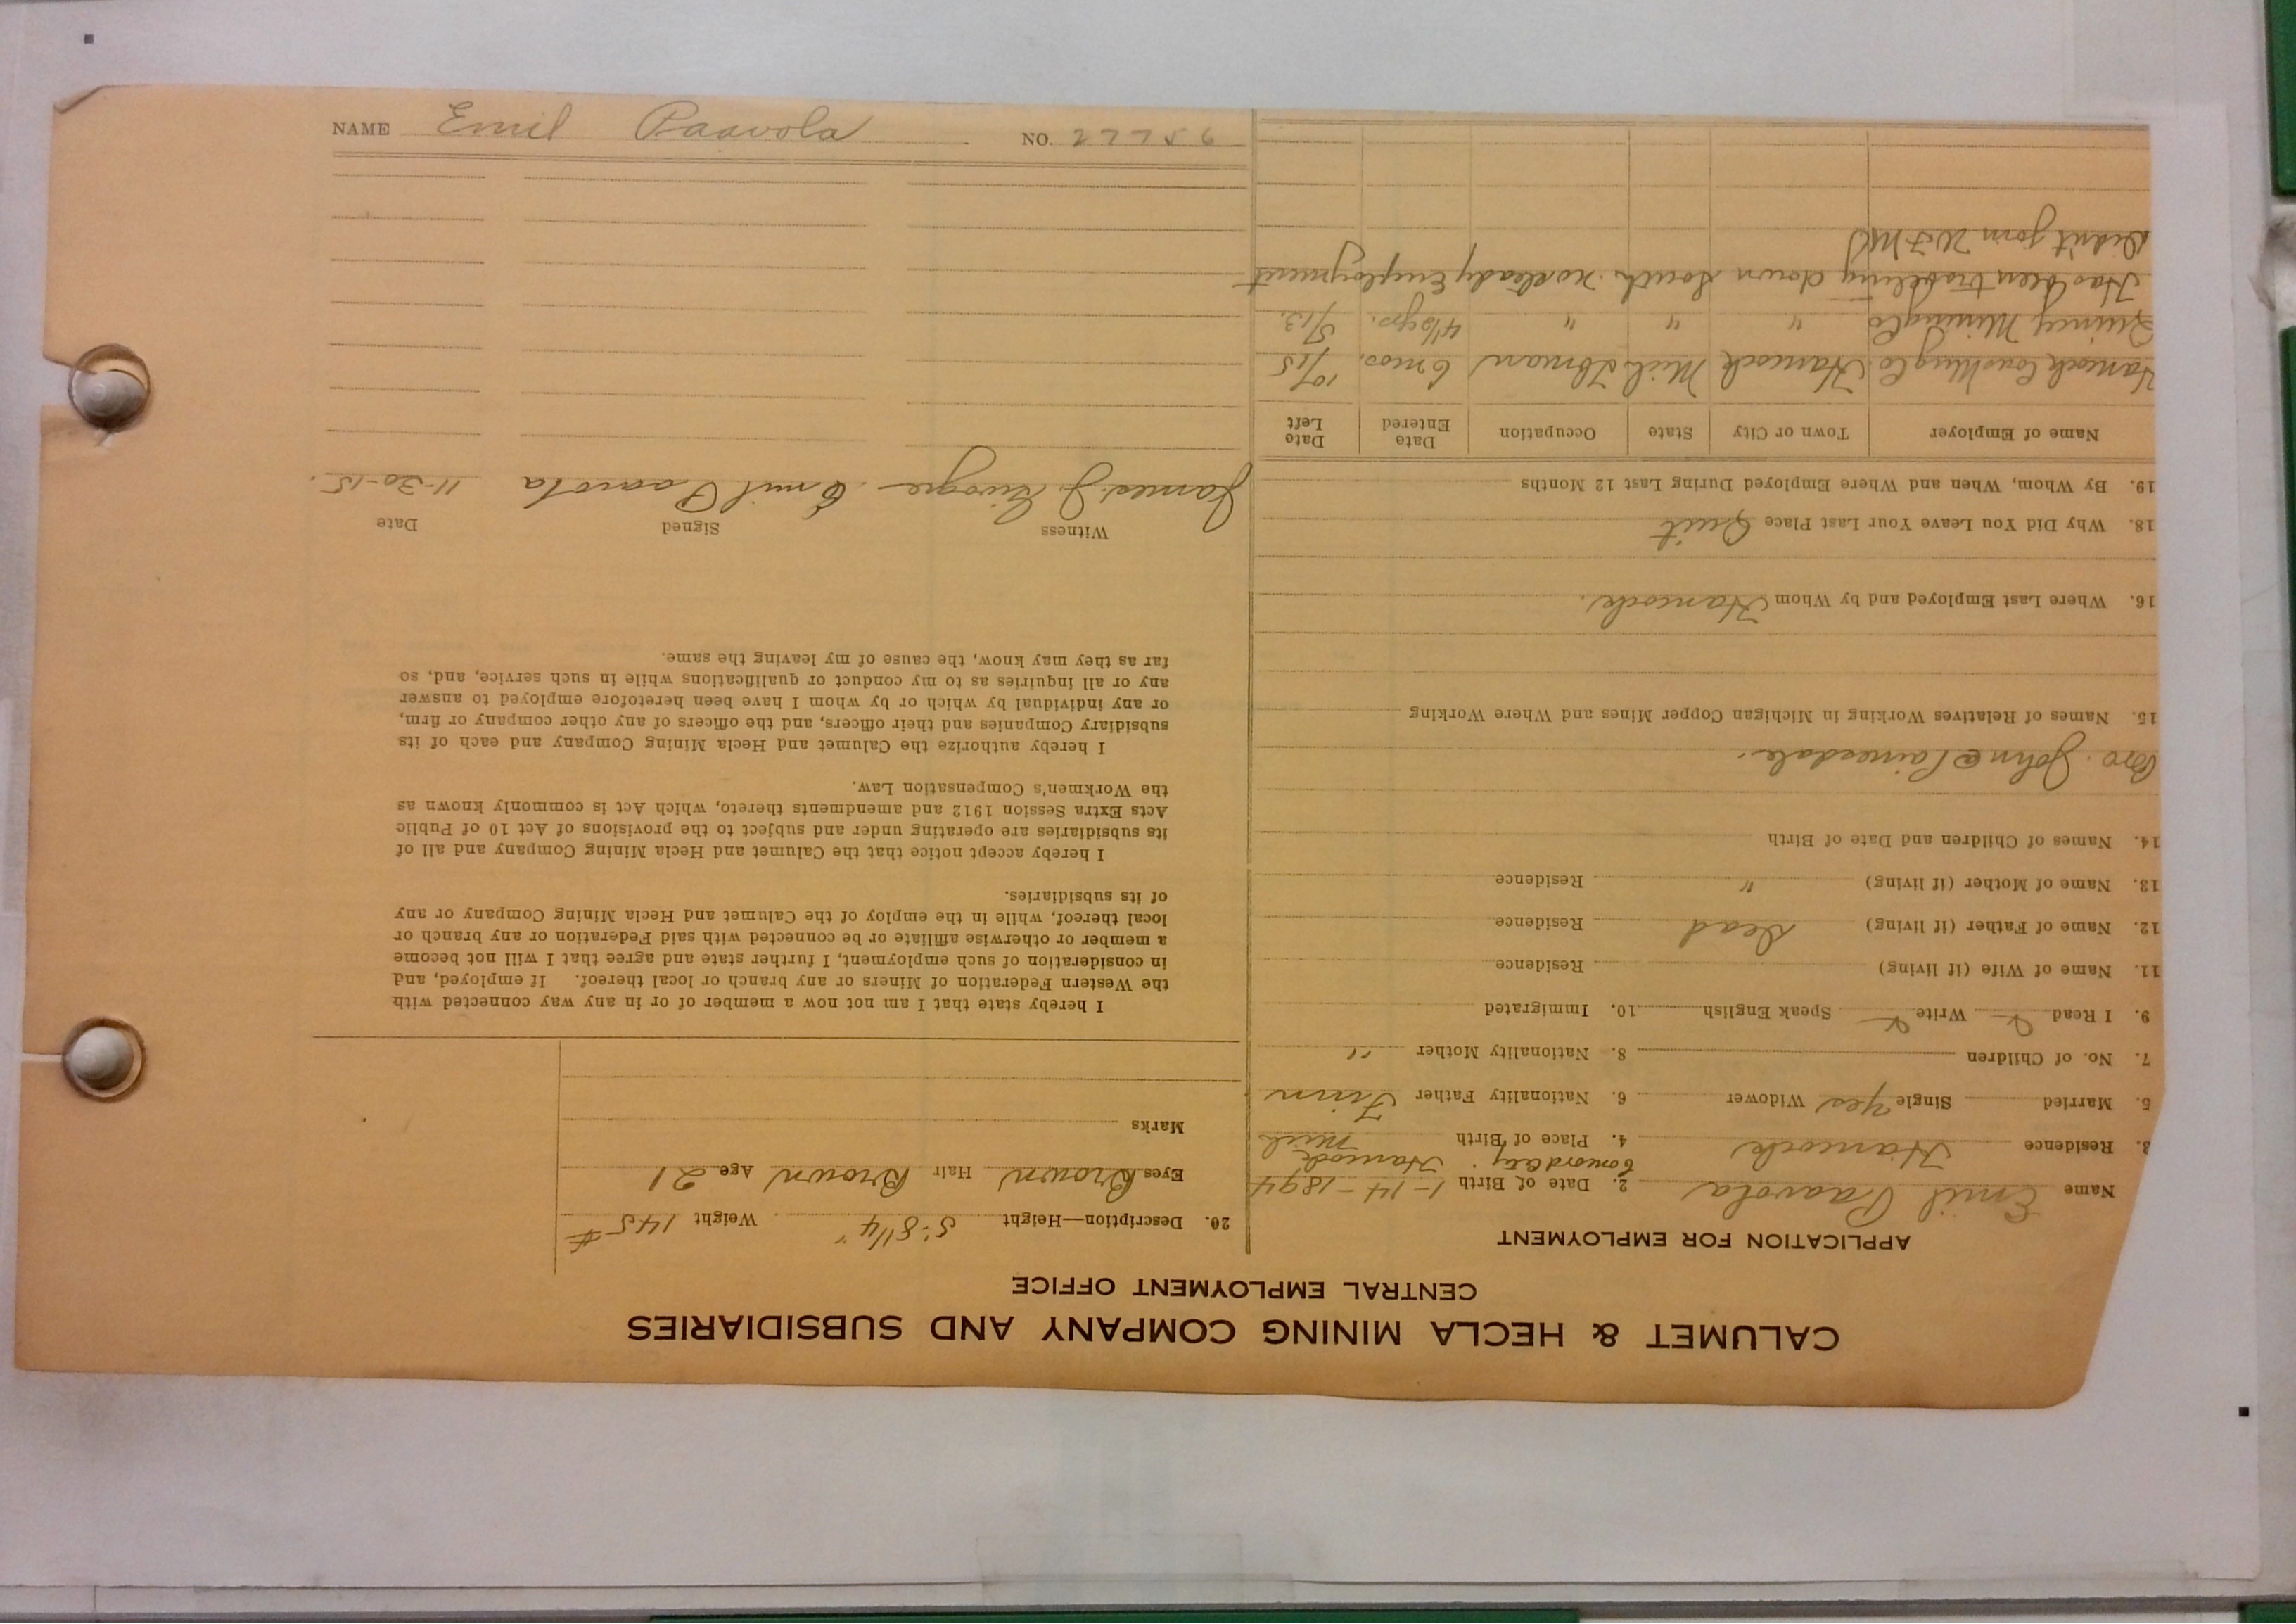 CALUMET & HECLA MINING COMPANY AND SUBSIDIARIES
CENTRAL EMPLOYMENT OFFICE
APPLICATION FOR EMPLOYMENT
Name Emil Paavola 2. Date of Birth 1-14-1894
Concord City. Hancock
3. Residence Hancock 4. Place of Birth Mich
5. Married Single Yes Widower 6. Nationality Father Finn
7. No. of Children 8. Nationality Mother "
9. I Read Write Speak English 10. Immigrated
11. Name of Wife (if living) Residence
12. Name of Father (if living) Dead Residence
13. Name of Mother (if living) " Residence
14. Names of Children and Date of Birth
Bro. John @ Painesdale.
15. Names of Relatives Working in Michigan Copper Mines and Where Working
16. Where Last Employed and by Whom Hancock.
18. Why Did You Leave Your Last Place Quit
19. By Whom, When and Where Employed During Last 12 Months
Name of Employer Town or City State Occupation Date Entered Date Left
Hancock Cons Mng Co. Hancock Mich 6 mos. 10/15
Quincy Mining Co " " " 4 1/2 yrs. 5/13.
Has been traveling down South. No steady Employment
Didn't join WFM
20. Description—Height 5'-8 1/4" Weight 145 #
Eyes Brown Hair Brown Age 21
Marks
I hereby state that I am not now a member of or in any way connected with
the Western Federation of Miners or any branch or local thereof. If employed, and
in consideration of such employment, I further state and agree that I will not become
a member or otherwise affiliate or be connected with said Federation or any branch or
local thereof, while in the employ of the Calumet and Hecla Mining Company or any
of its subsidiaries.
I hereby accept notice that the Calumet and Hecla Mining Company and all of
its subsidiaries are operating under and subject to the provisions of Act 10 of Public
Acts Extra Session 1912 and amendments thereto, which Act is commonly known as
the Workmen's Compensation Law.
I hereby authorize the Calumet and Hecla Mining Company and each of its
subsidiary Companies and their officers, and the officers of any other company or firm,
or any individual by which or by whom I have been heretofore employed to answer
any or all inquiries as to my conduct or qualifications while in such service, and, so
far as they may know, the cause of my leaving the same.
Witness Signed Date
James J. Emil Paavola 11-30-15.
NAME Emil Paavola NO. 27756